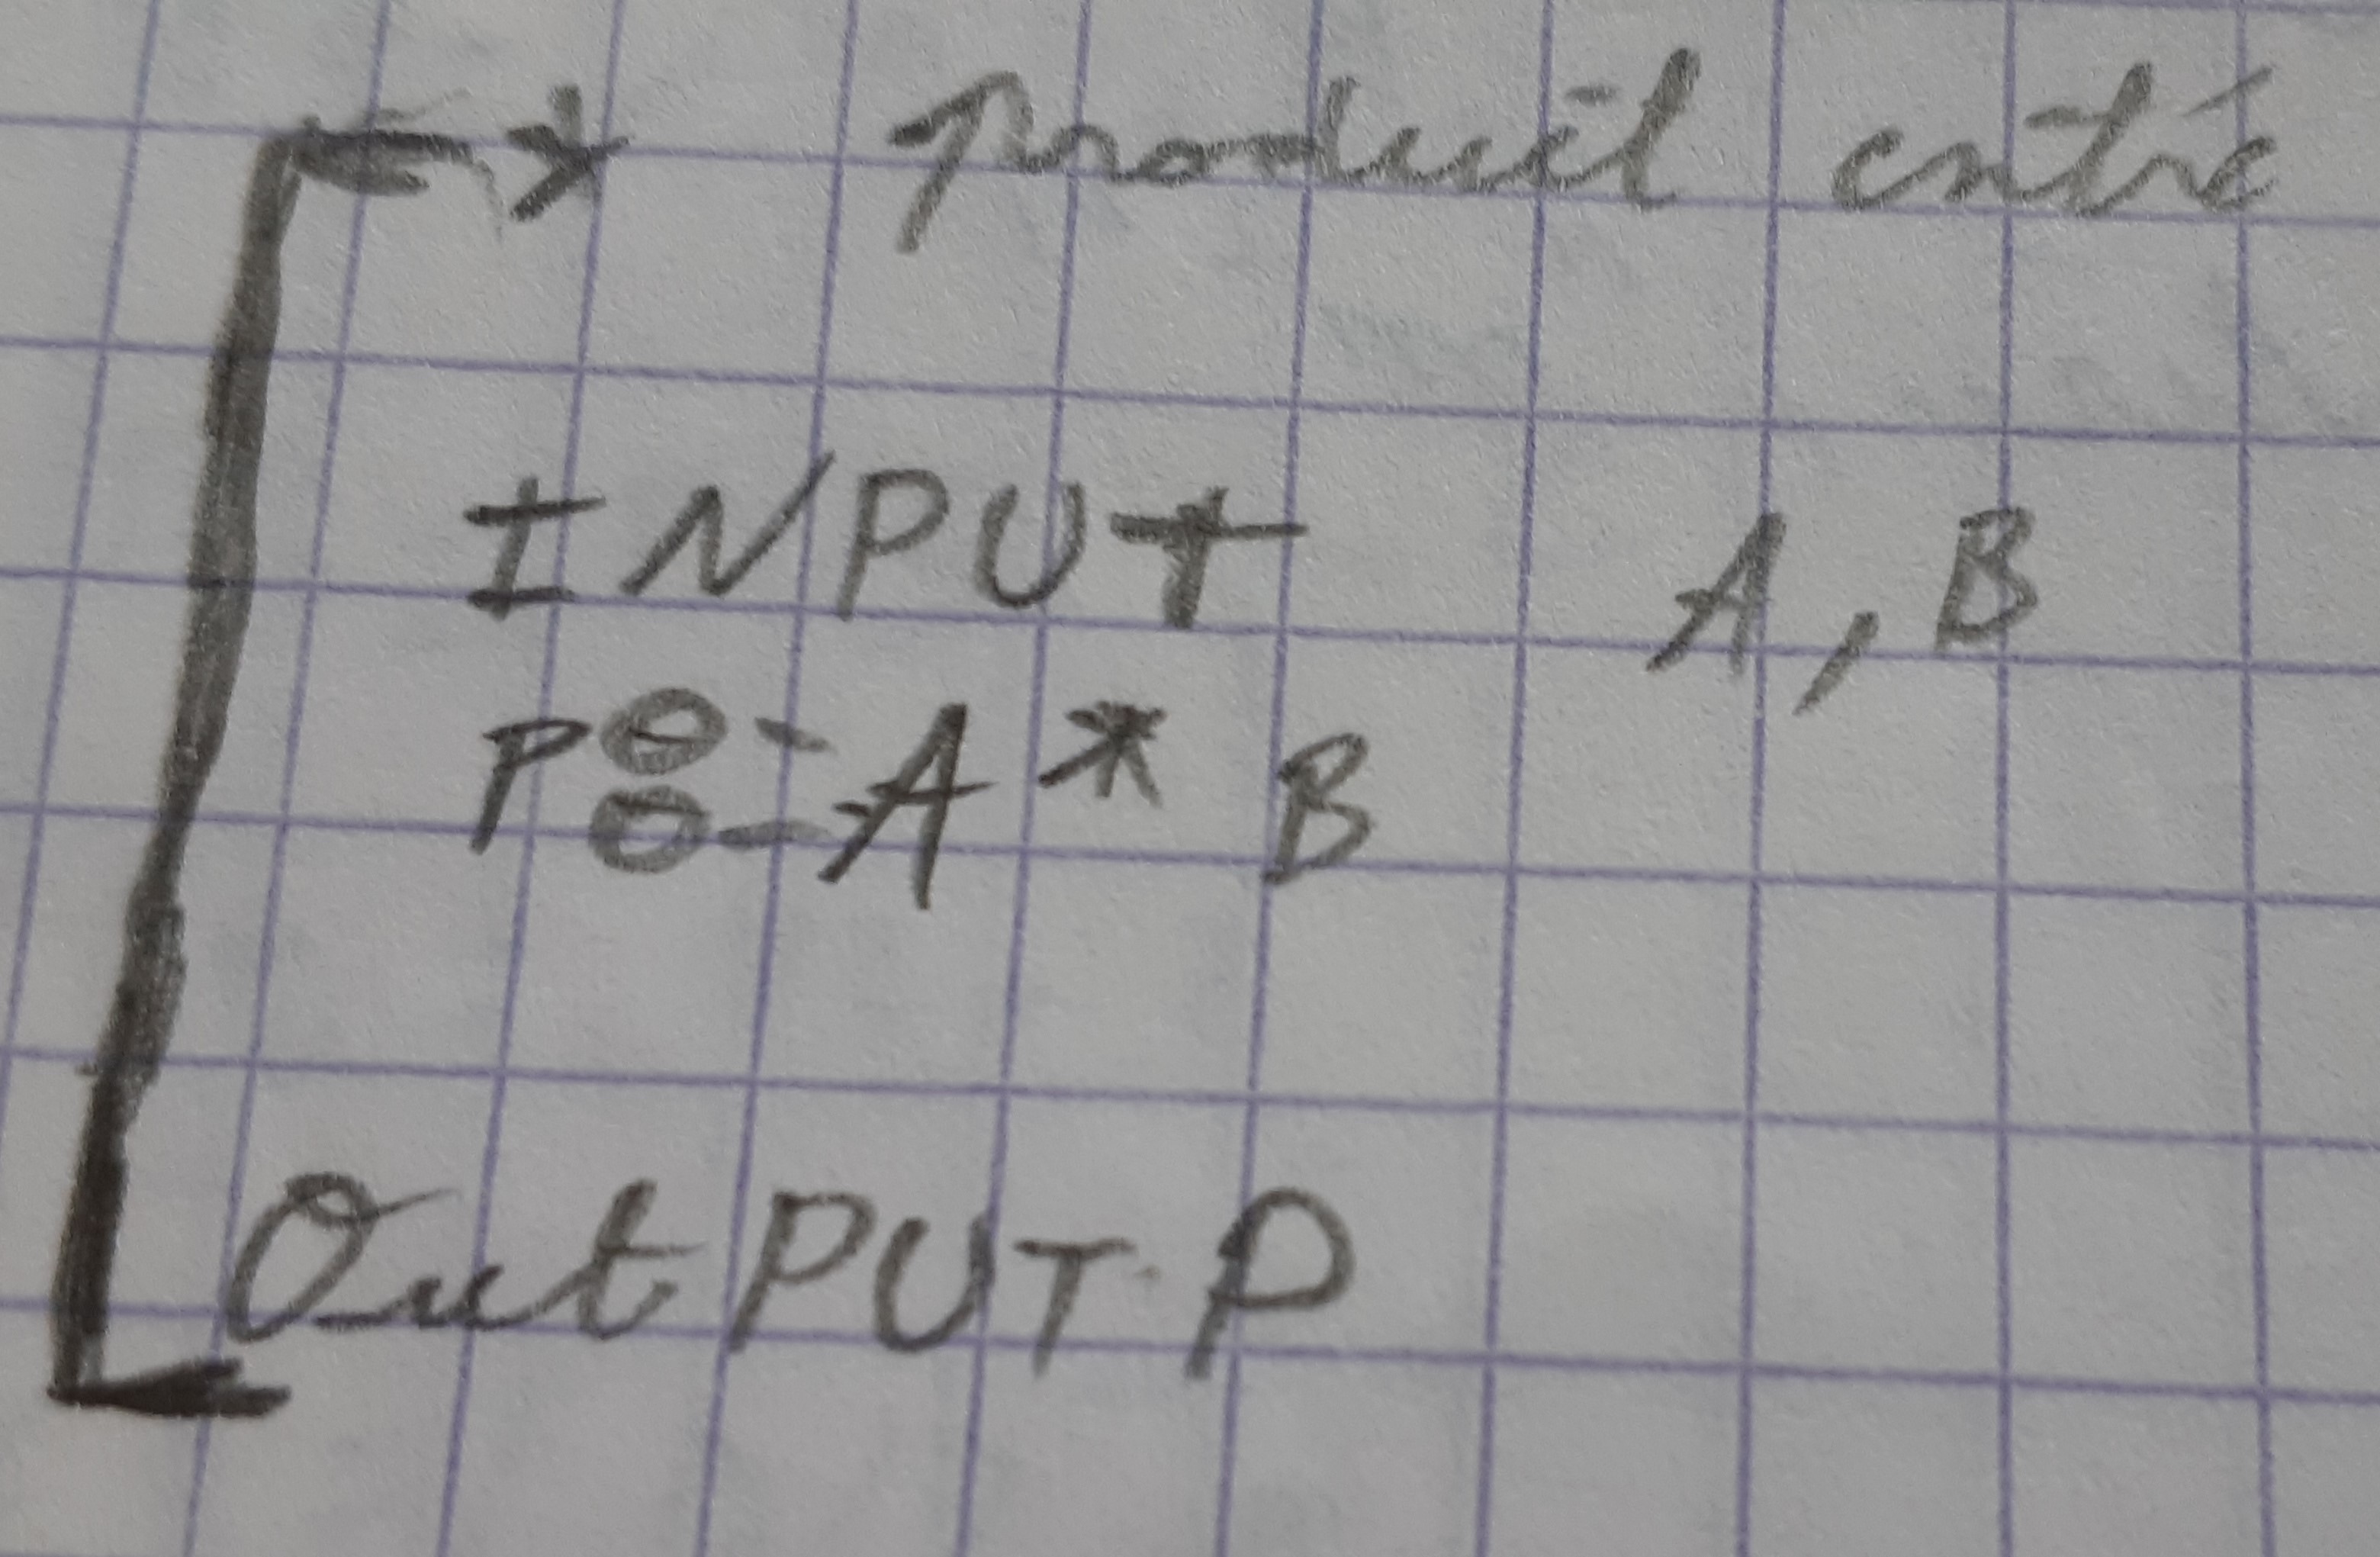 * Produit entre
INPUT A, B
P := A * B
OutPUT P